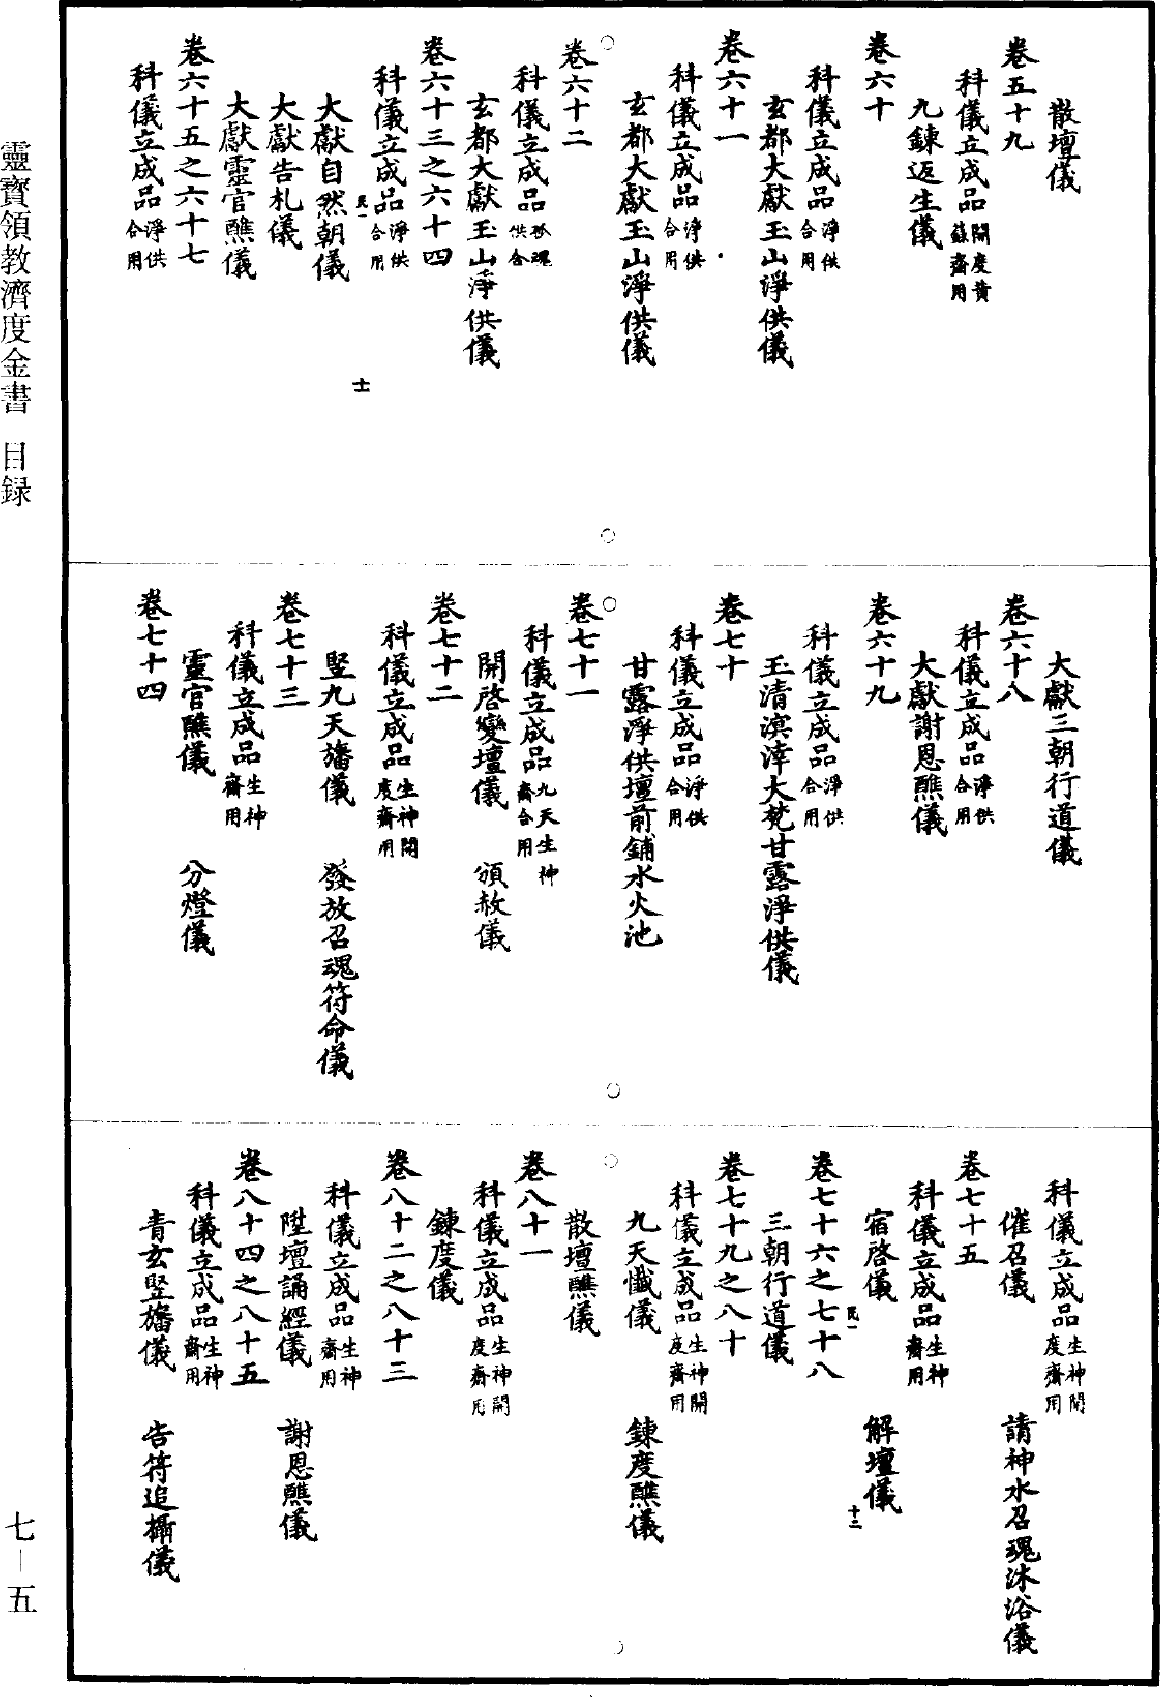 散壇儀
卷五十九
科儀立成品 開度黃籙齋用
九鍊返生儀
卷六十
科儀立成品 淨供合用
玄都大獻玉山淨供儀
卷六十一
科儀立成品 淨供合用
玄都大獻玉山淨供儀
卷六十二
科儀立成品
玄都大獻玉山淨供儀
卷六十三之六十四
科儀立成品 淨供合用
民一
十一
大獻自然朝儀
大獻告札儀
大獻靈官醮儀
卷六十五之六十七
科儀立成品 淨供合用
大獻三朝行道儀
卷六十八
科儀立成品 淨供合用
大獻謝恩醮儀
卷六十九
科儀立成品 淨供合用
玉清溟涬大梵甘露淨供儀
卷七十
科儀立成品 淨供合用
甘露淨供壇前鋪水火池
卷七十一
科儀立成品 九天生神齋合用
開啓變壇儀 頒赦儀
卷七十二
科儀立成品 生神開度齋用
竪九天旛儀 發放召魂符命儀
卷七十三
科儀立成品 生神齋用
靈官醮儀 分燈儀
卷七十四
科儀立成品 生神開度齋用
催召儀 請神水召魂沐浴儀
卷七十五
科儀立成品 生神齋用
宿啓儀 解壇儀
民一
十二
卷七十六之七十八
三朝行道儀
卷七十九之八十
科儀立成品 生神開度齋用
九天懺儀 鍊度醮儀
散壇醮儀
卷八十一
科儀立成品 生神開度齋用
鍊度儀
卷八十二之八十三
科儀立成品 生神齋用
陞壇誦經儀 謝恩醮儀
卷八十四之八十五
科儀立成品 生神齋用
青玄竪旛儀 告符追攝儀
靈寶領教濟度金書 目録
七－五